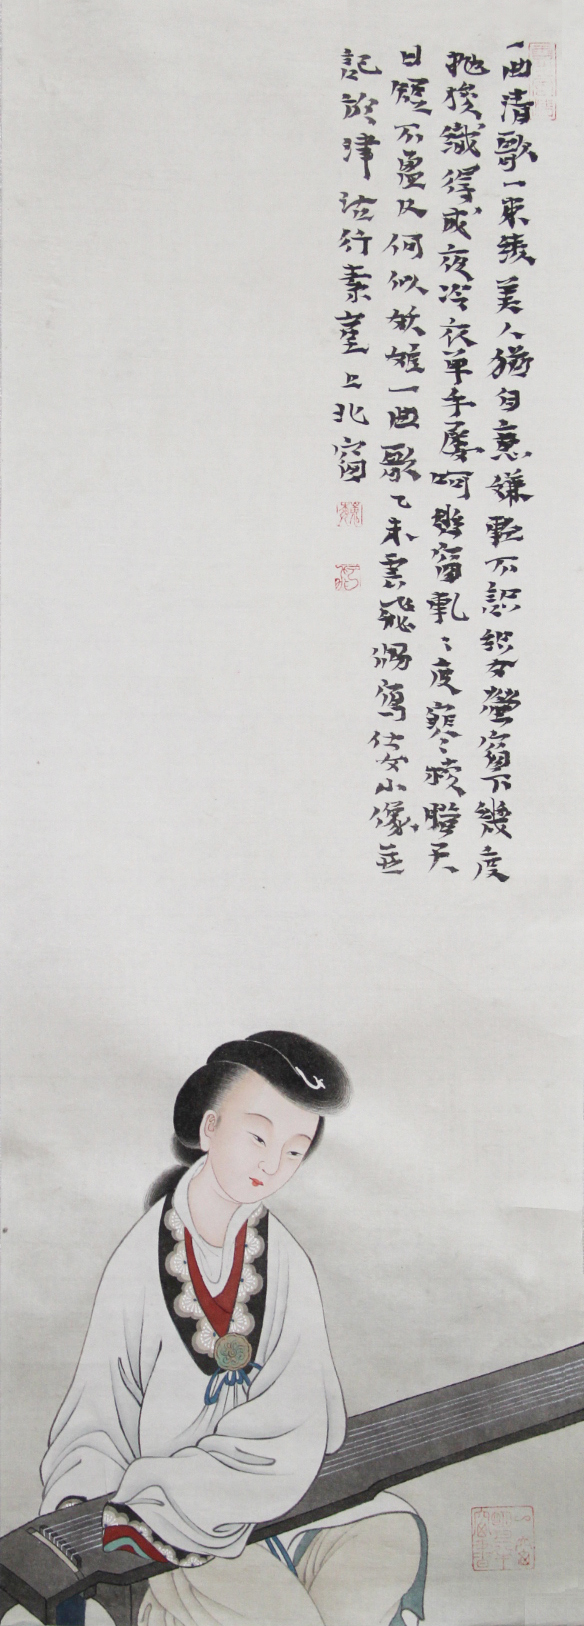 一曲清歌一束綾美人猶自意嫌輕不女螢窗下幾度
抛梭織得成夜冷衣單手屢呵幽窗軋〻度寒〻梭臘天
日短不盈尺何似妖姬一曲歌乙未雲飛揚寫仕女小像並
記於津沽行素堂之北窗